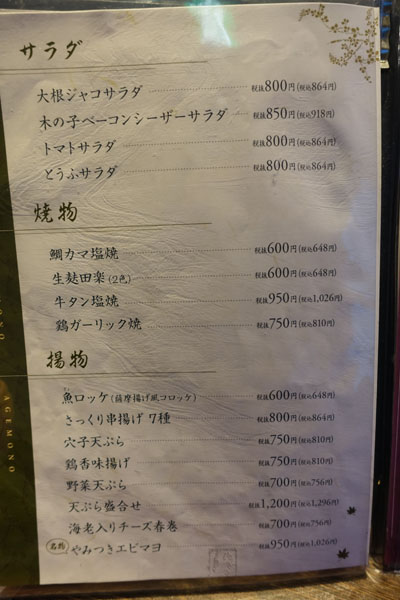 サラダ
大根ジャコサラダ 税抜800円(税込864円)
木の子ベーコンシーザーサラダ 税抜850円(税込918円)
トマトサラダ 税抜800円(税込864円)
とうふサラダ 税抜800円(税込864円)
焼物
鯛カマ塩焼 税抜600円(税込648円)
生麩田楽(2色) 税抜600円(税込648円)
牛タン塩焼 税抜950円(税込1,026円)
鶏ガーリック焼 税抜750円(税込810円)
揚物
魚ロッケ(薩摩揚げ風コロッケ) 税抜600円(税込648円)
さっくり串揚げ7種 税抜800円(税込864円)
穴子天ぷら 税抜750円(税込810円)
鶏香味揚げ 税抜750円(税込810円)
野菜天ぷら 税抜700円(税込756円)
天ぷら盛合せ 税抜1,200円(税込1,296円)
海老入りチーズ春巻 税抜700円(税込756円)
名物 やみつきエビマヨ 税抜950円(税込1,026円)
AGEMONO